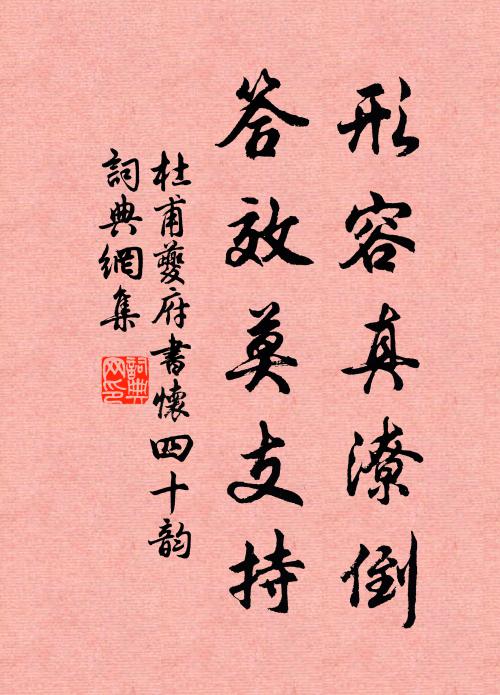 形容真潦倒
答效莫支持
杜甫夔府書懷四十韵
詞典網集
詞典網印